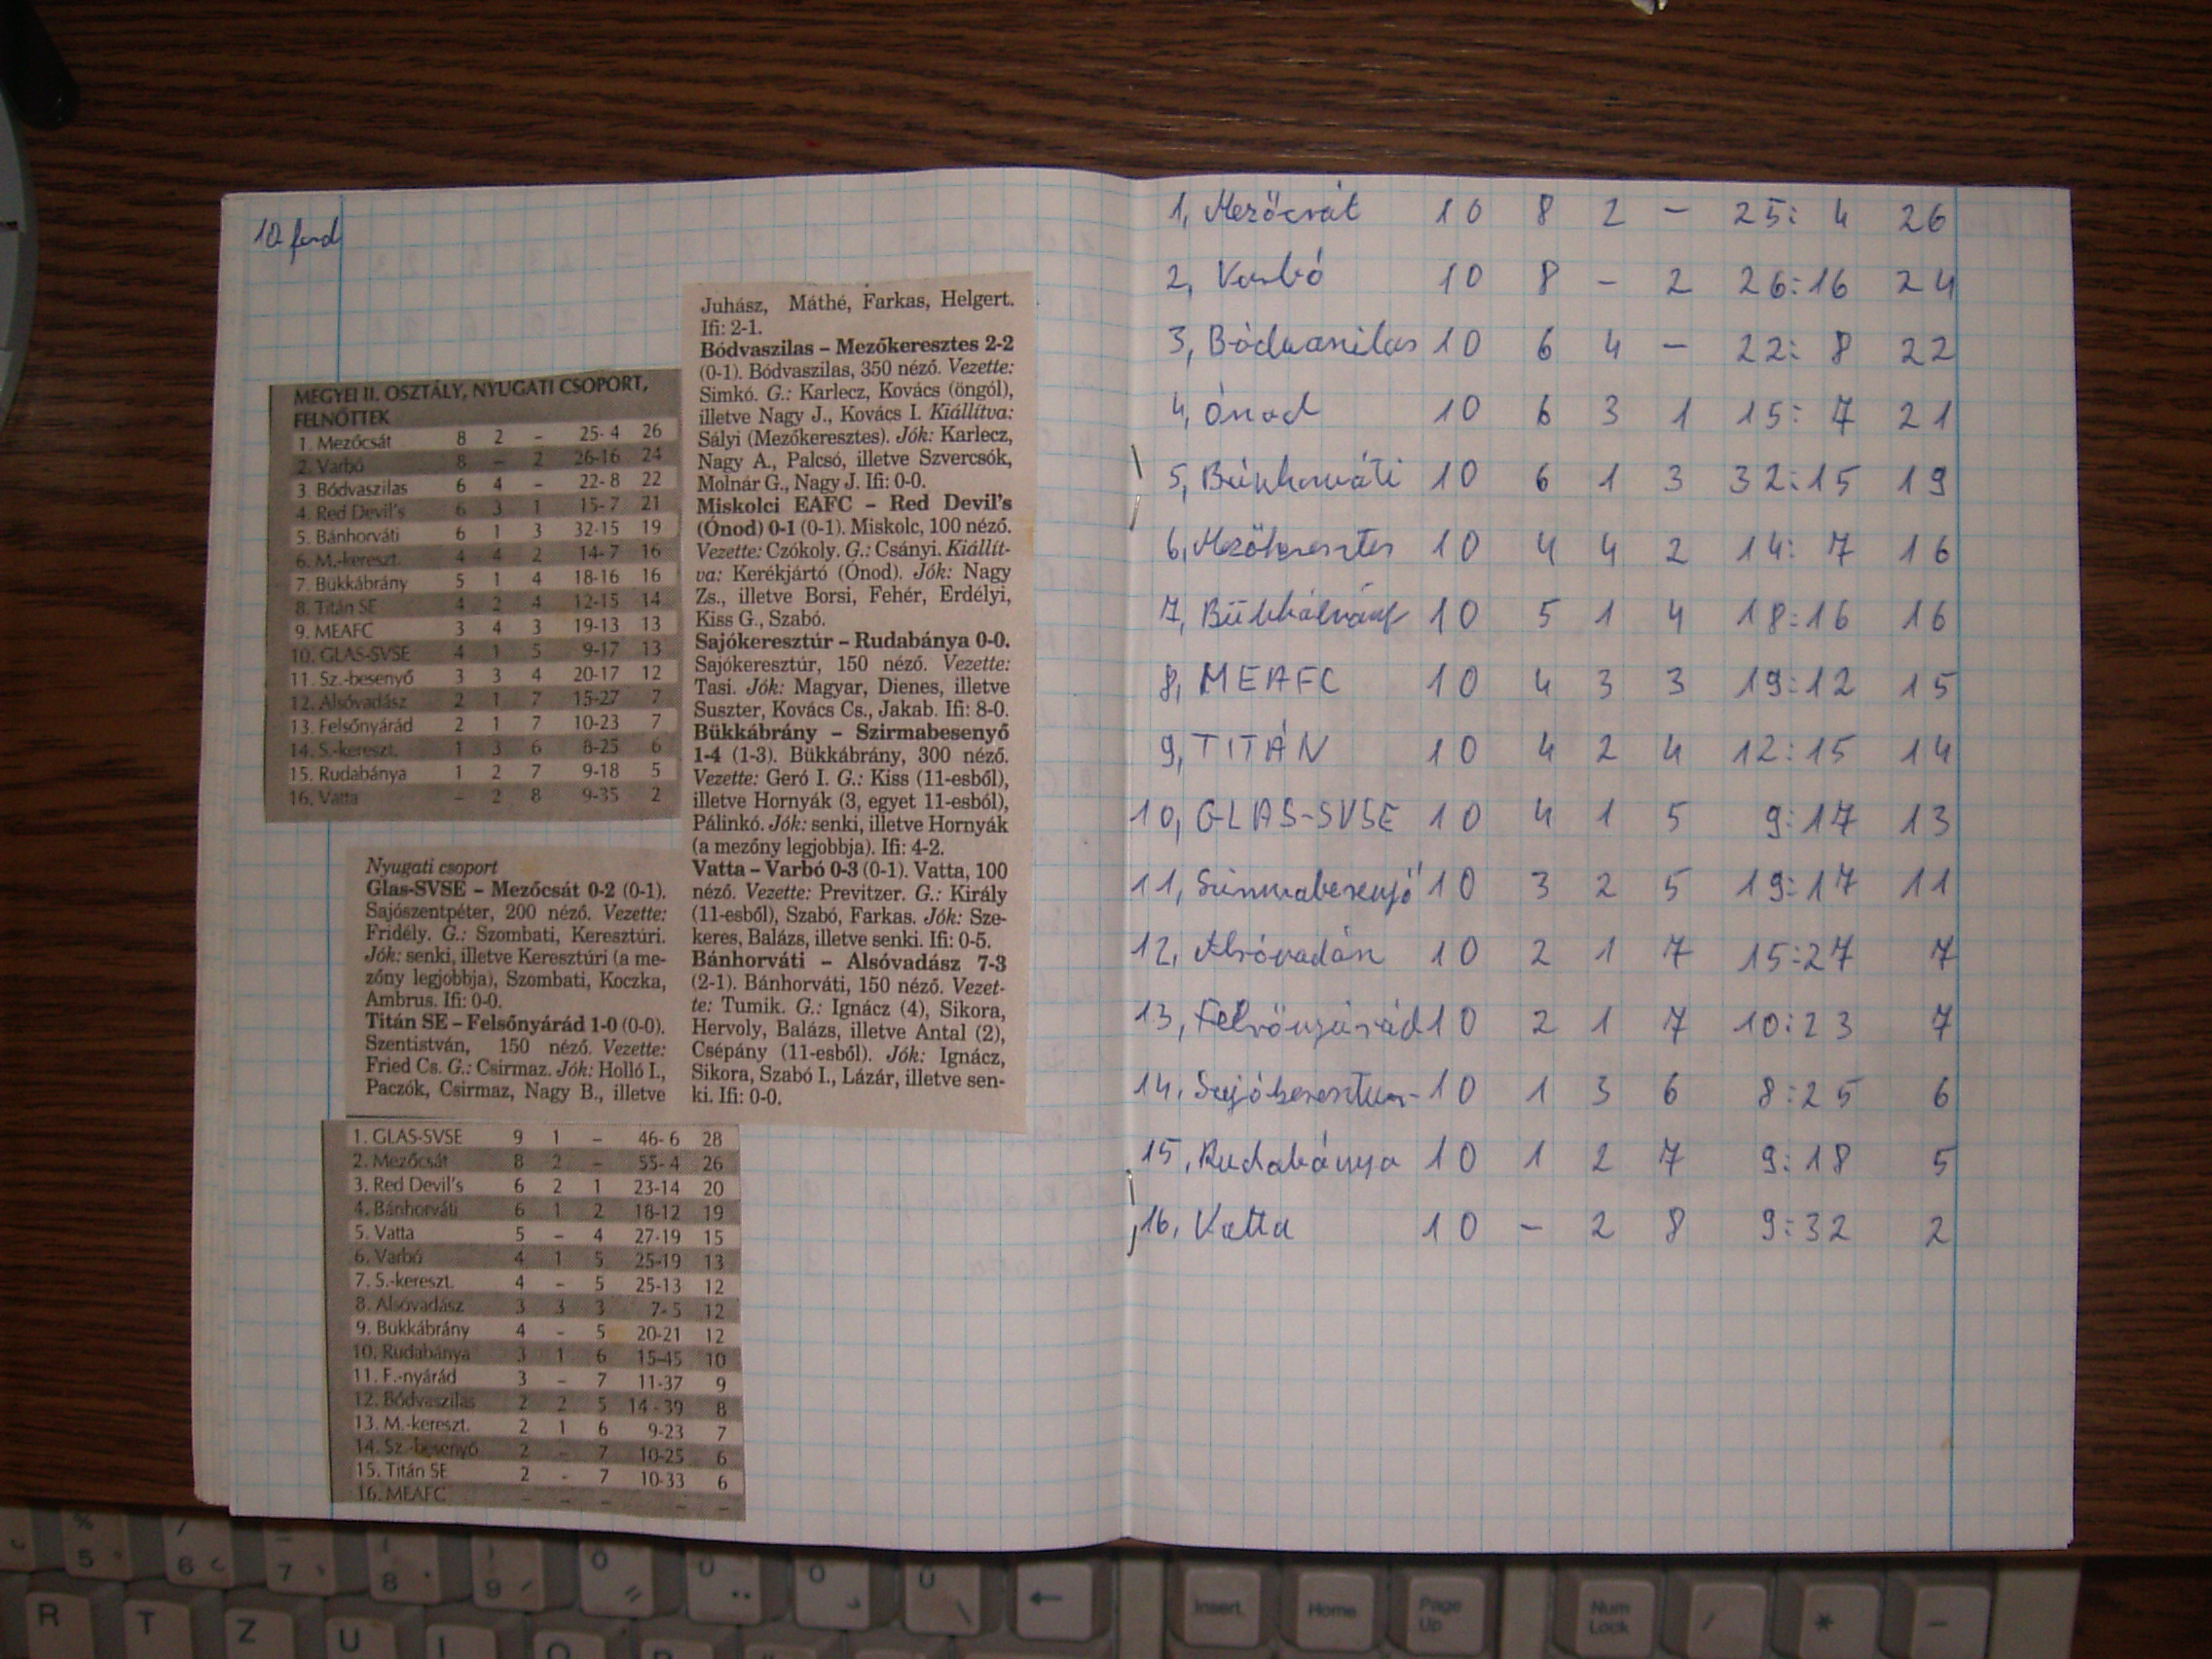 10. ford
MEGYEI II. OSZTÁLY, NYUGATI CSOPORT,
FELNŐTTEK
1. Mezőcsát 8 2 - 25- 4 26
2. Varbó 8 - 2 26-16 24
3 Bódvaszilas 6 4 - 22- 8 22
4. Red Devil's 6 3 1 15- 7 21
5. Bánhorváti 6 1 3 32-15 19
6. M.-kereszt. 4 4 2 14- 7 16
7. Bükkábrány 5 1 4 18-16 16
8. Titán SE 4 2 4 12-15 14
9. MEAFC 3 4 3 19-13 13
10. GLAS-SVSE 4 1 5 9-17 13
11. Sz.-besenyő 3 3 4 20-17 12
12. Alsóvadász 2 1 7 15-27 7
13. Felsőnyárád 2 1 7 10-23 7
14. S.-kereszt. 1 3 6 8-25 6
15. Rudabánya 1 2 7 9-18 5
16. Vatta - 2 8 9-35 2
Nyugati csoport
Glas-SVSE – Mezőcsát 0-2 (0-1).
Sajószentpéter, 200 néző. Vezette:
Fridély. G.: Szombati, Keresztúri.
Jók: senki, illetve Keresztúri (a me-
zőny legjobbja), Szombati, Koczka,
Ambrus. Ifi: 0-0.
Titán SE – Felsőnyárád 1-0 (0-0).
Szentistván, 150 néző. Vezette:
Fried Cs. G.: Csirmaz. Jók: Holló I.,
Paczók, Csirmaz, Nagy B., illetve
Juhász, Máthé, Farkas, Helgert.
Ifi: 2-1.
Bódvaszilas – Mezőkeresztes 2-2
(0-1). Bódvaszilas, 350 néző. Vezette:
Simkó. G.: Karlecz, Kovács (öngól),
illetve Nagy J., Kovács I. Kiállítva:
Sályi (Mezőkeresztes). Jók: Karlecz,
Nagy A., Palcsó, illetve Szvercsók,
Molnár G., Nagy J. Ifi: 0-0.
Miskolci EAFC – Red Devil's
(Ónod) 0-1 (0-1). Miskolc, 100 néző.
Vezette: Czókoly. G.: Csányi. Kiállít-
va: Kerékjártó (Ónod). Jók: Nagy
Zs., illetve Borsi, Fehér, Erdélyi,
Kiss G., Szabó.
Sajókeresztúr – Rudabánya 0-0.
Sajókeresztúr, 150 néző. Vezette:
Tasi. Jók: Magyar, Dienes, illetve
Suszter, Kovács Cs., Jakab. Ifi: 8-0.
Bükkábrány – Szirmabesenyő
1-4 (1-3). Bükkábrány, 300 néző.
Vezette: Geró I. G.: Kiss (11-esből),
illetve Hornyák (3, egyet 11-esből),
Pálinkó. Jók: senki, illetve Hornyák
(a mezőny legjobbja). Ifi: 4-2.
Vatta – Varbó 0-3 (0-1). Vatta, 100
néző. Vezette: Previtzer. G.: Király
(11-esből), Szabó, Farkas. Jók: Sze-
keres, Balázs, illetve senki. Ifi: 0-5.
Bánhorváti – Alsóvadász 7-3
(2-1). Bánhorváti, 150 néző. Vezet-
te: Tumik. G.: Ignácz (4), Sikora,
Hervoly, Balázs, illetve Antal (2),
Csépány (11-esből). Jók: Ignácz,
Sikora, Szabó I., Lázár, illetve sen-
ki. Ifi: 0-0.
1. GLAS-SVSE 9 1 - 46- 6 28
2. Mezőcsát 8 2 - 55- 4 26
3. Red Devil's 6 2 1 23-14 20
4. Bánhorváti 6 1 2 18-12 19
5. Vatta 5 - 4 27-19 15
6. Varbó 4 1 5 25-19 13
7. S.-kereszt. 4 - 5 25-13 12
8. Alsóvadász 3 3 3 7- 5 12
9. Bükkábrány 4 - 5 20-21 12
10. Rudabánya 3 1 6 15-45 10
11. F.-nyárád 3 - 7 11-37 9
12. Bódvaszilas 2 2 5 14-39 8
13. M.-kereszt. 2 1 6 9-23 7
14. Sz.-besenyő 2 - 7 10-25 6
15. Titán SE 2 - 7 10-33 6
16. MEAFC - - - - -
1, Mezőcsát 10 8 2 - 25: 4 26
2, Varbó 10 8 - 2 26:16 24
3, Bódvaszilas 10 6 4 - 22: 8 22
4, Ónod 10 6 3 1 15: 7 21
5, Bánhorváti 10 6 1 3 32:15 19
6, Mezőkeresztes 10 4 4 2 14: 7 16
7, Bükkábrány 10 5 1 4 18:16 16
8, MEAFC 10 4 3 3 19:12 15
9, TITÁN 10 4 2 4 12:15 14
10, GLAS-SVSE 10 4 1 5 9:17 13
11, Szirmabesenyő 10 3 2 5 19:17 11
12, Alsóvadász 10 2 1 7 15:27 7
13, Felsőnyárád 10 2 1 7 10:23 7
14. Sajókeresztúr 10 1 3 6 8:25 6
15, Rudabánya 10 1 2 7 9:18 5
16, Vatta 10 - 2 8 9:32 2
% 5 / 6 = 7 ( 8 ) 9 Ö Ü Ó Ű ←
Insert Home Page Up Num Lock / * -
R T Z U I O